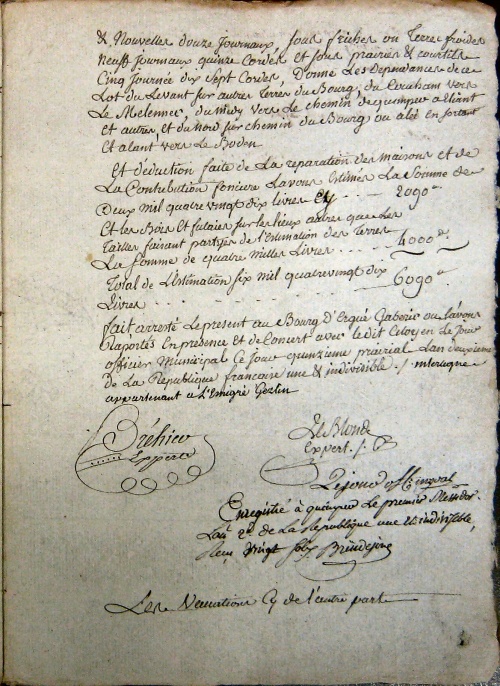 & Nouvelles douze Journaux, sous friches ou Terres froides
Neuf journaux quinze Cordes et sous prairies & courtils
Cinq Journée dix Sept Cordes, Donne Les Dependances de ce
Lot du Levant sur autres Terres du Bourg, du Couchant vers
Le Melennec, du midy vers Le chemin de quimper a Elliant
et autres, et du Nord sur chemin du Bourg ou alée en sortant
Et alant vers Le Boden
Et déduction faite de La reparation des maisons et de
La Contribution fonciere Lavons Estimés La Somme de
Deux mil quatre vingt dix livres Cy . . . 2090
Et les Bois Et futaies sur les lieux autres que Les
Tailles faisant partyes de l'Estimation des Terres
La Somme de quatre milles Livres . . . 4000
Total de L'Estimation six mil quatrevingt dix
Livres . . . . . . . 6090
fait arresté Le present au Bourg D'Ergué Gaberic ou l'avons
raportés En presence Et de Concert avec le dit Citoyen Le Jour
officier Municipal Ce Jour quinzieme prairial Lan deuxieme
de La Republique francoise une & indivisible ./. interligne
appartenant a L'Emigré Geslin
Bréhier
Expert
Le Blond
Expert ./.
Lejour off. municipal
Enregistré à quimper Le premier Messidor
Lan 2e de La Republique une et indivisible,
Reçu Vingt sols
Les Vacations Cy de L'autre part